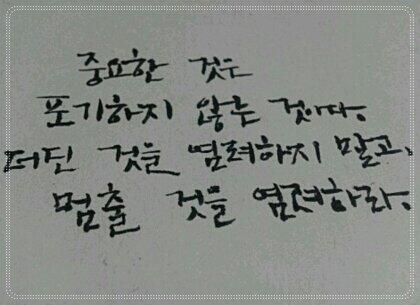 중요한 것은
포기하지 않는 것이다.
더딘 것을 염려하지 말고,
멈출 것을 염려하라.